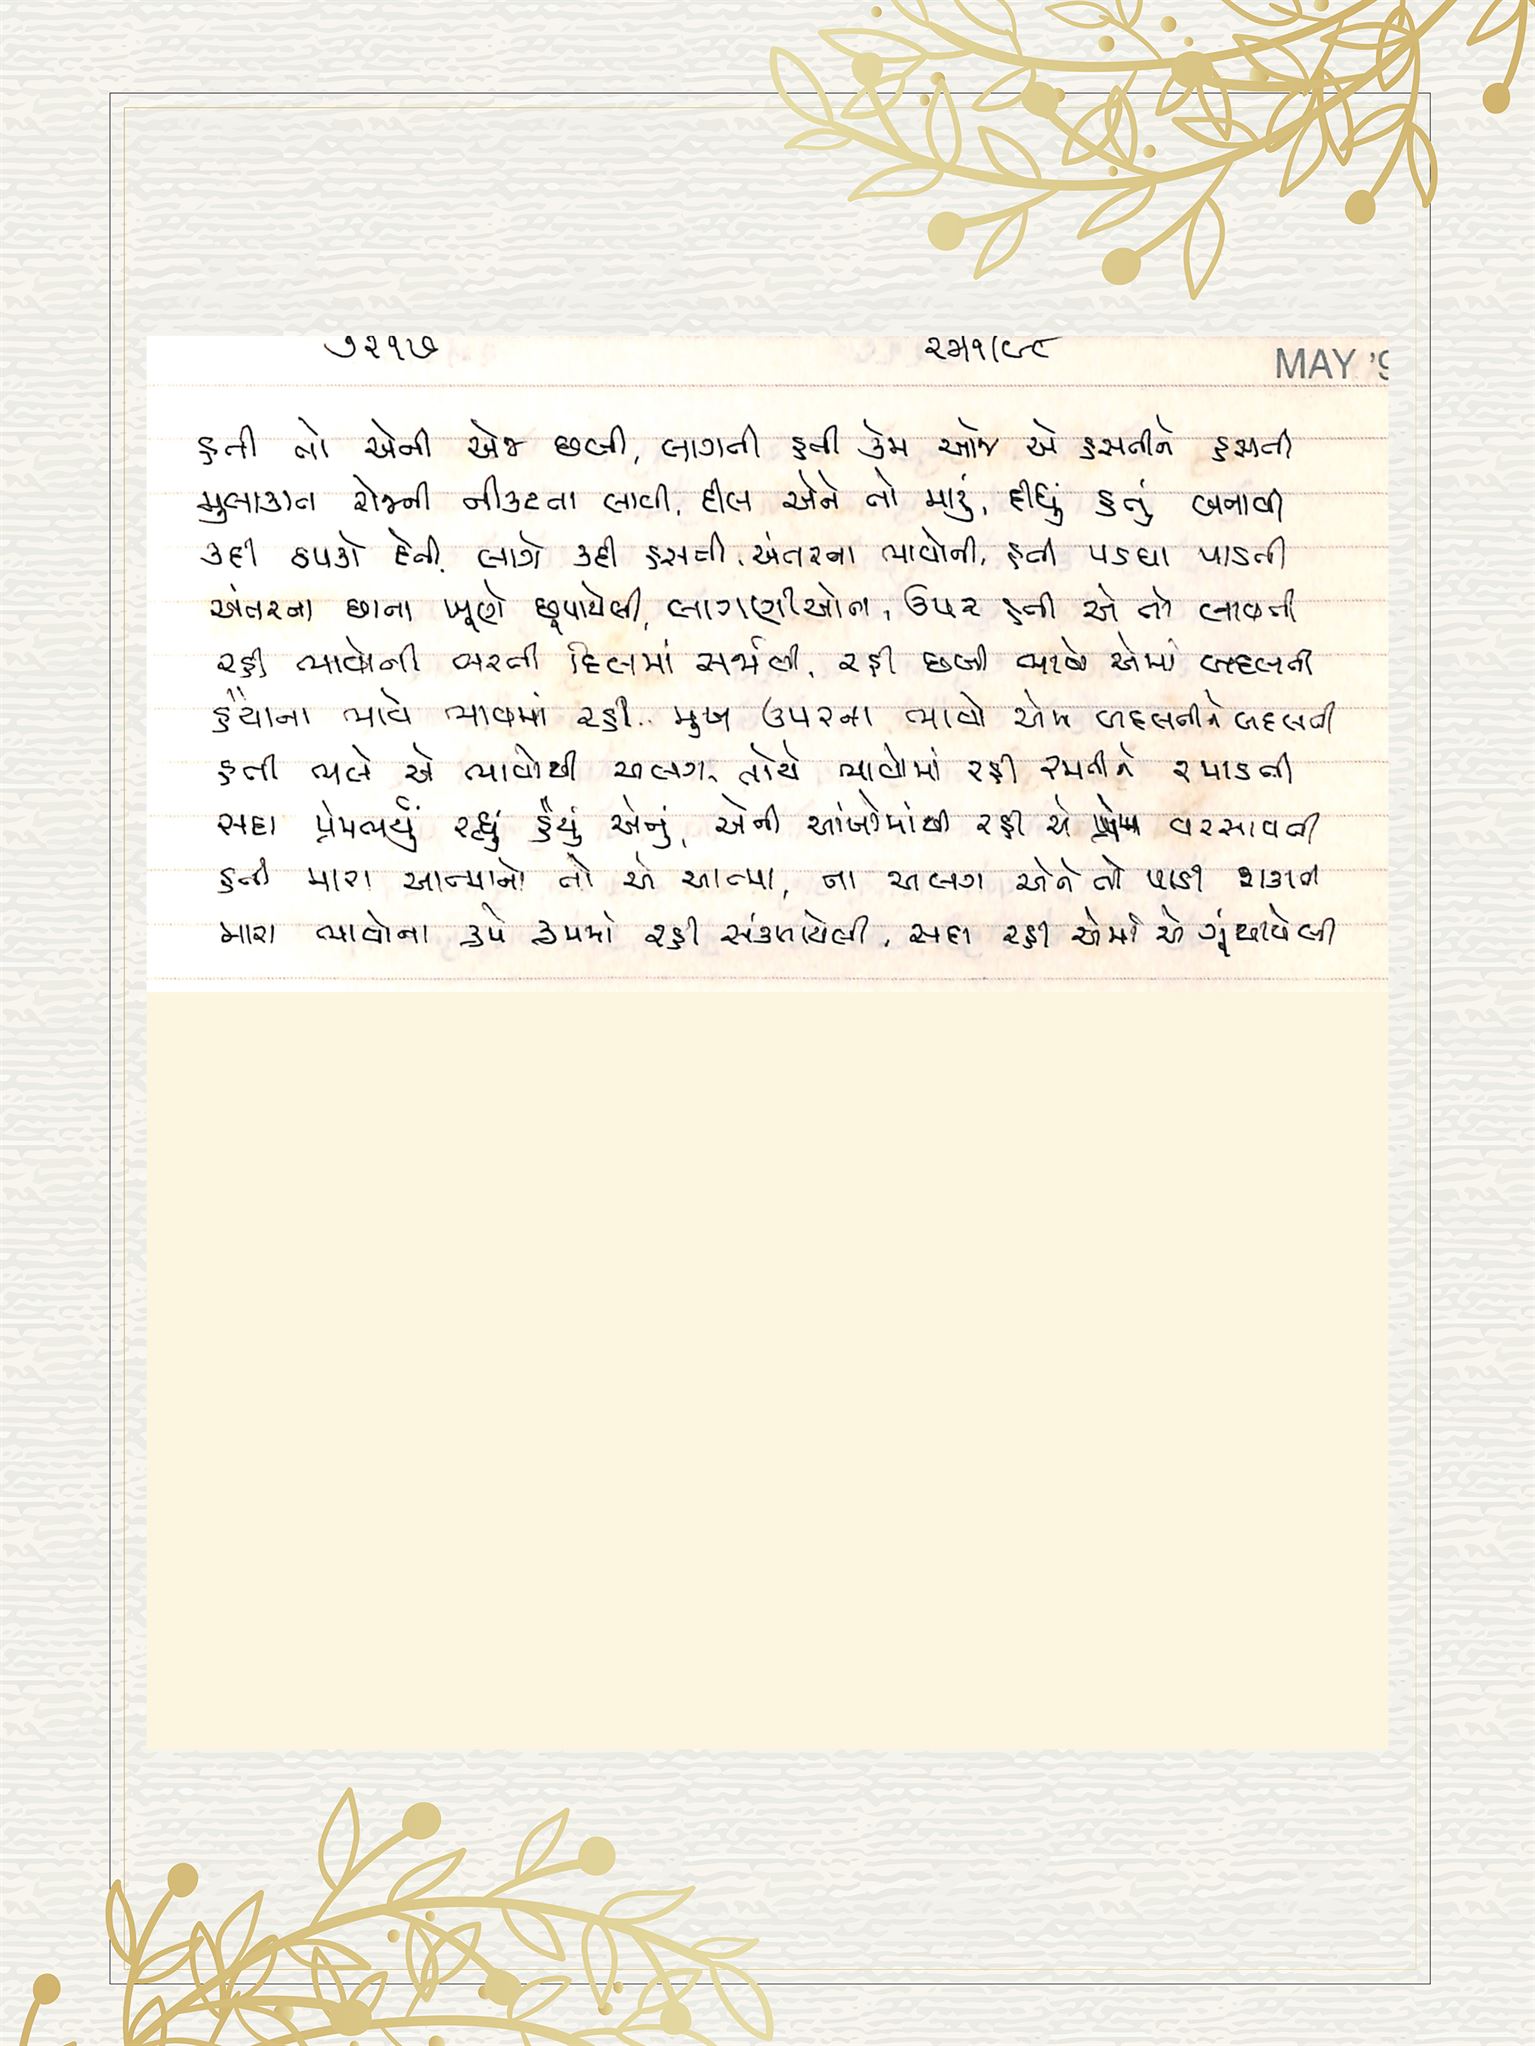 ૭૨૧૭
MAY '9
હતી તો એની એજ છબી, લાગતી હતી કેમ આજ એ હસતીને હસતી
મુલાકાત રોજની નીકટતા લાવી, દીલ એને તો મારું, દીધું હતું બનાવી
કદી ઠપકો દેતી, લાગે કદી હસતી, અંતરના ભાવોની, હતી પડઘા પાડતી
અંતરના છાના ખૂણે છૂપાયેલી, લાગણીઓને, ઉપર હતી એ તો લાવતી
રહી ભાવોની ભરતી દિલમાં સર્જાતી, રહી છબી ભાવો એમાં બદલતી
હૈયાના ભાવે ભાવમાં રહી.. મુખ ઉપરના ભાવો એમ બદલતીને બદલતી
હતી ભલે એ ભાવોથી અલગ, તોયે ભાવોમાં રહી રમતીને રમાડતી
સદા પ્રેમભર્યું રહ્યું હૈયું એનું, એની આંખોમાંથી રહી એ પ્રેમ વરસાવતી
હતી મારા આત્માનો તો એ આત્મા, ના અલગ એને તો પાડી શકાતી
મારા ભાવોના રૂપે રૂપમાં રહી સંકળાયેલી, સદા રહી એમાં એ ગૂંથાયેલી